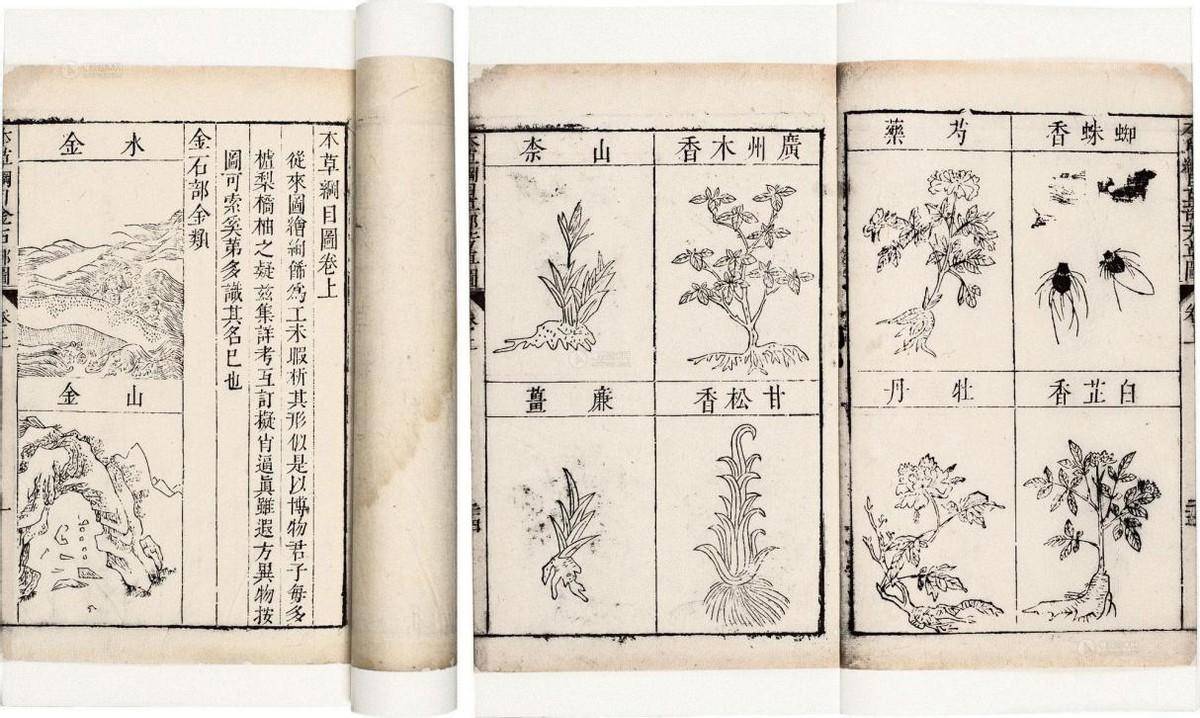 本草綱目圖卷上
從來圖繪絢飾爲工未暇析其形似是以博物君子每多
樝梨橘柚之疑茲集詳考互訂擬肖逼眞雖遐方異物按
圖可索奚第多識其名已也
金石部金類
水金
山金
本草綱目金石部圖
蜘蛛香
芍藥
白芷香
牡丹
廣州木香
山柰
甘松香
廉薑